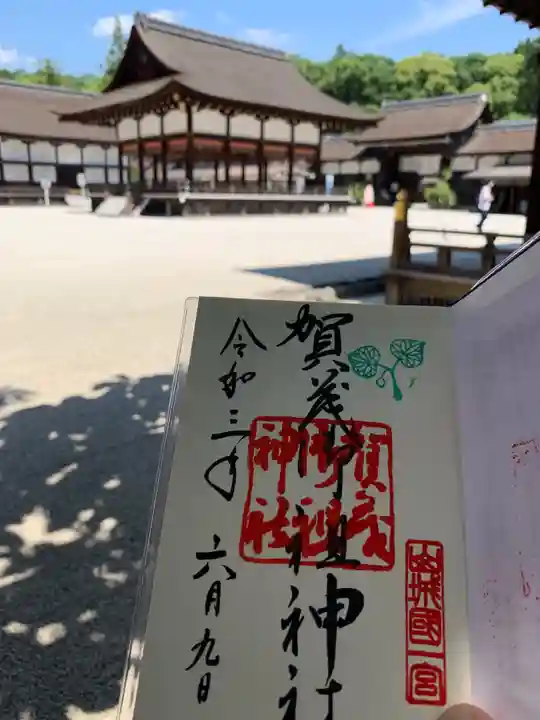 山城國一宮
賀茂御祖神社
賀茂
御祖
神社
令和三年
六月九日